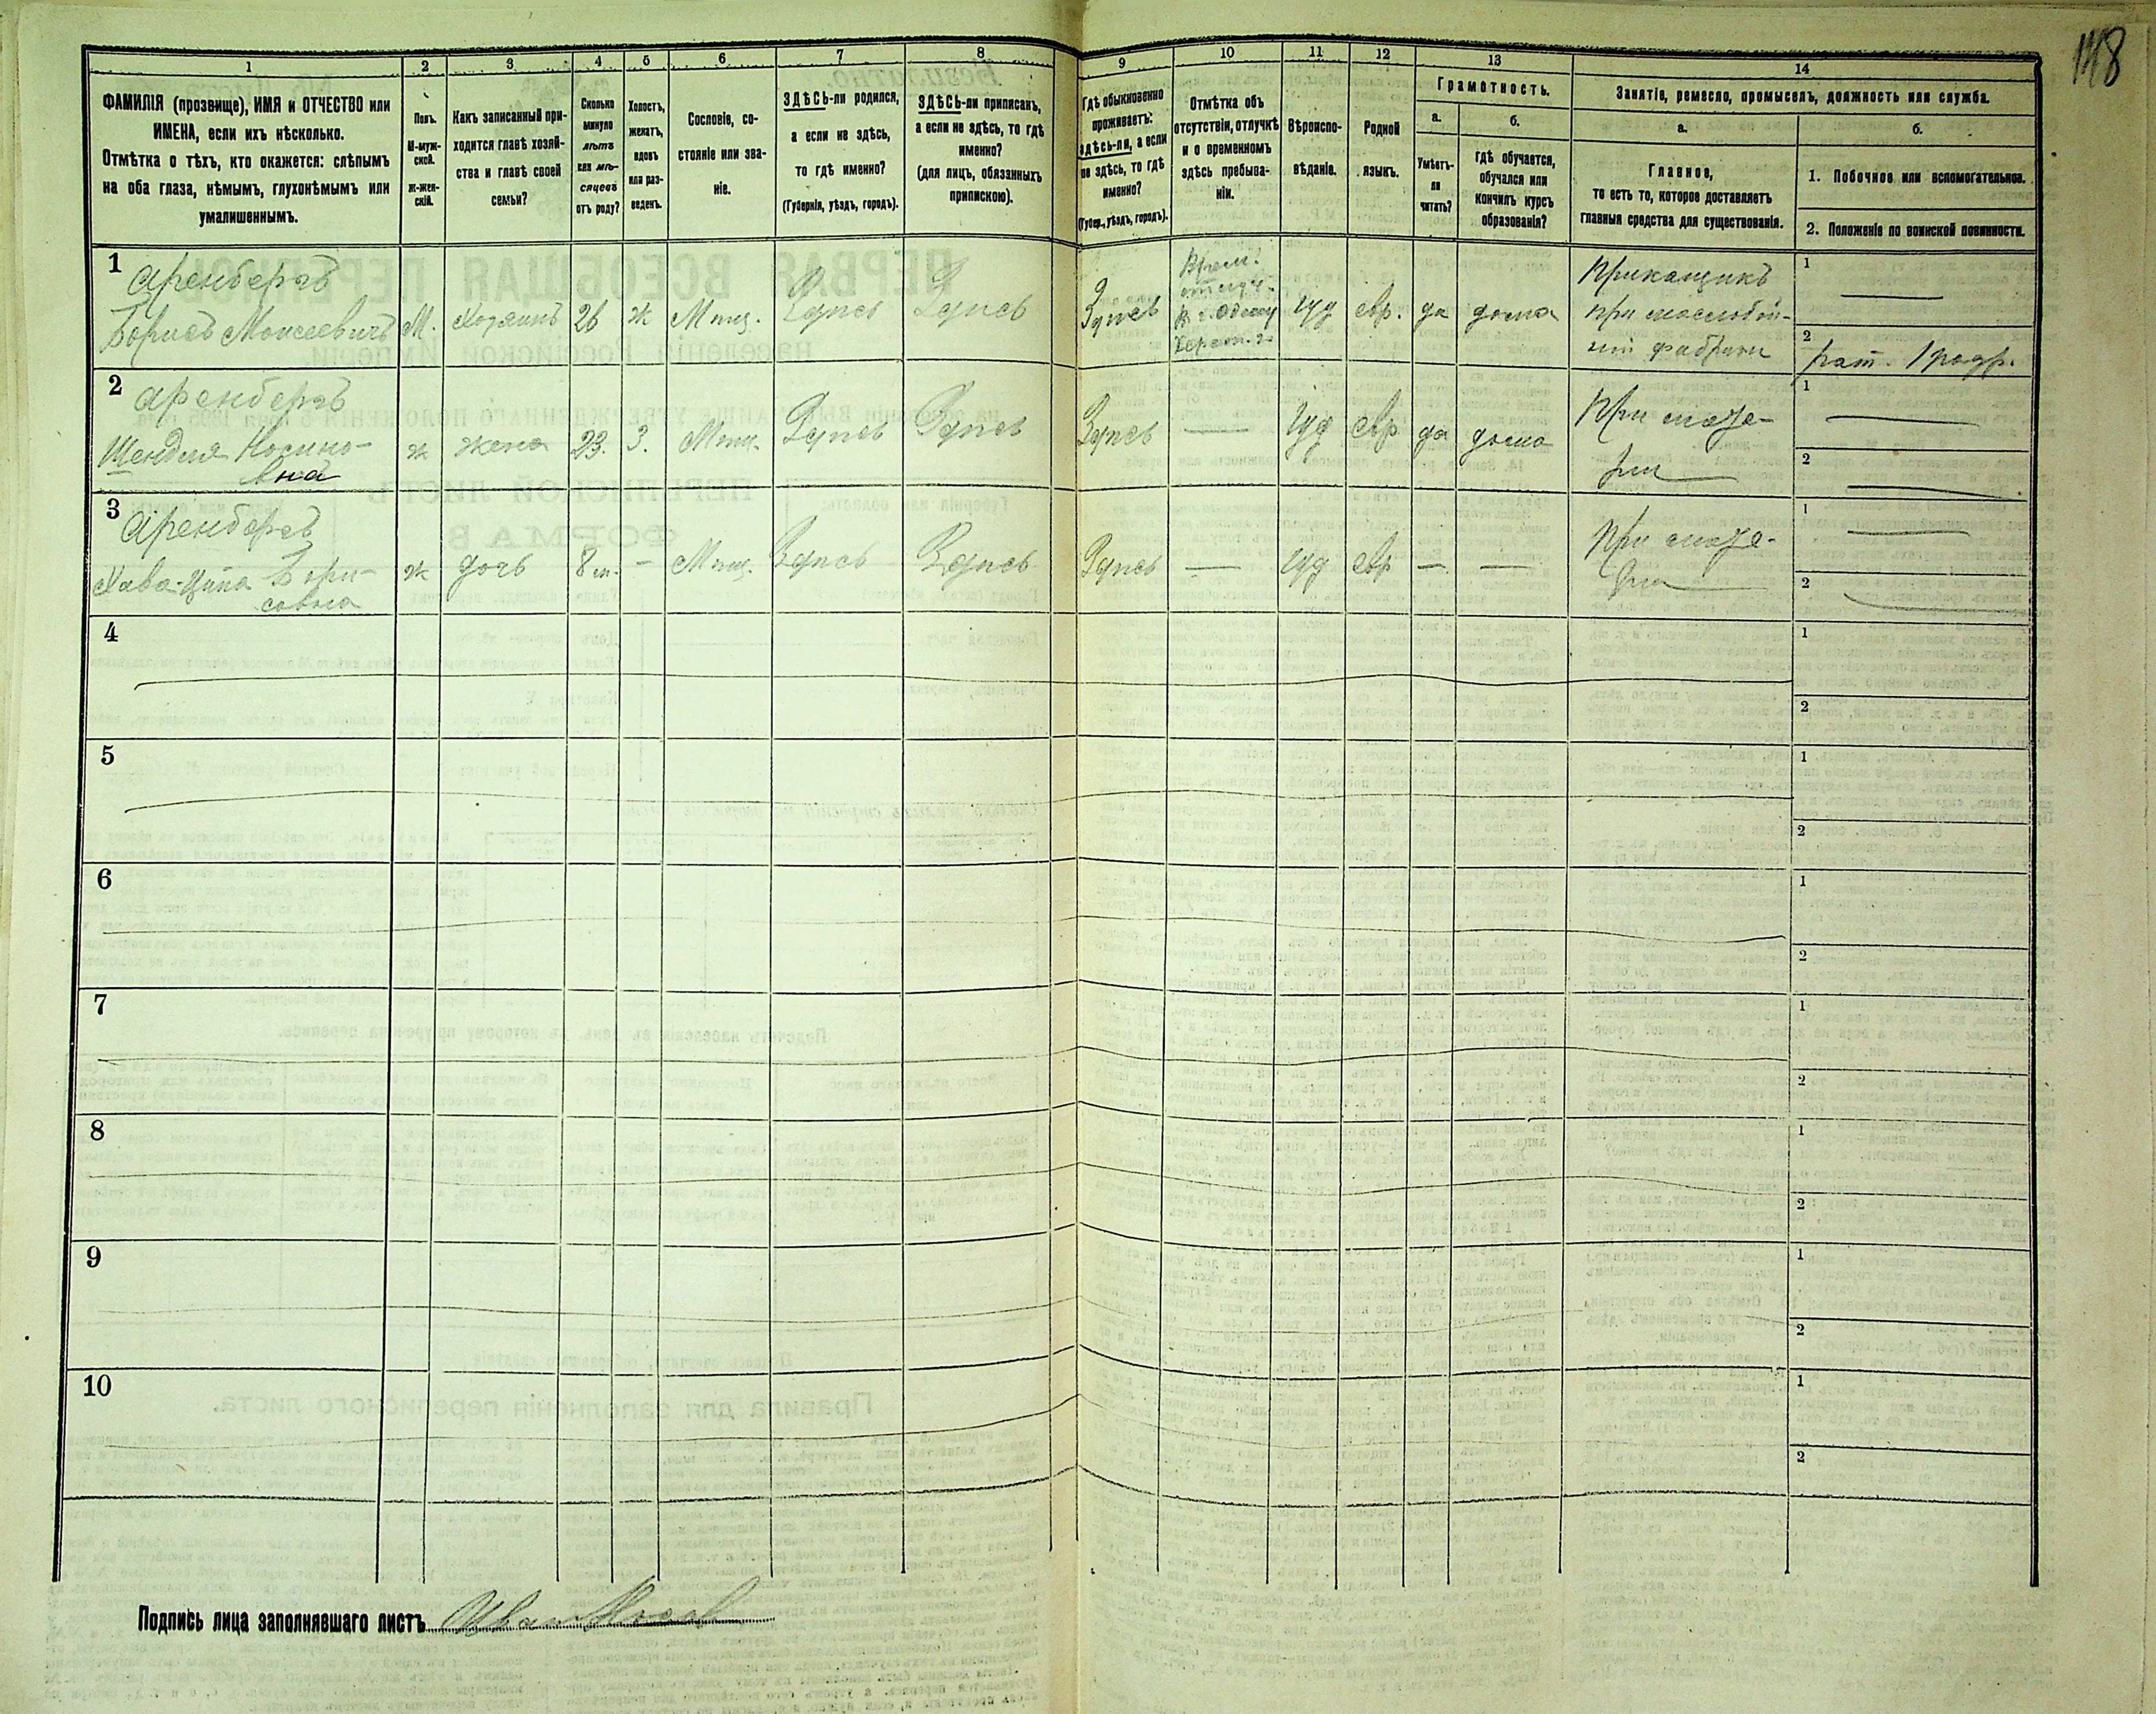 148
1 2 3 4 5 6 7 8 9 10 11 12 13 14
ФАМИЛІЯ (прозвище), ИМЯ и ОТЧЕСТВО или
ИМЕНА, если ихъ нѣсколько.
Отмѣтка о тѣхъ, кто окажется: слѣпымъ
на оба глаза, нѣмымъ, глухонѣмымъ или
умалишеннымъ.
Полъ.
М-муж-
ской.
Ж-жен-
скій.
Какъ записанный при-
ходится главѣ хозяй-
ства и главѣ своей
семьи?
Сколько
минуло
лѣтъ
или мѣ-
сяцевъ
отъ роду?
Холостъ,
женатъ,
вдовъ
или раз-
веденъ.
Сословіе, со-
стояніе или зва-
ніе.
ЗДѢСЬ-ли родился,
а если не здѣсь,
то гдѣ именно?
(Губернія, уѣздъ, городъ).
ЗДѢСЬ-ли приписанъ,
а если не здѣсь, то гдѣ
именно?
(для лицъ, обязанныхъ
припискою).
Гдѣ обыкновенно
проживаетъ:
здѣсь-ли, а если
не здѣсь, то гдѣ
именно?
(Губер., уѣздъ, городъ).
Отмѣтка объ
отсутствіи, отлучкѣ
и о временномъ
здѣсь пребыва-
ніи.
Вѣроиспо-
вѣданіе.
Родной
языкъ.
Грамотность.
а.
Умѣетъ-
ли
читать?
б.
Гдѣ обучается,
обучался или
кончилъ курсъ
образованія?
Занятіе, ремесло, промыселъ, должность или служба.
а.
Главное,
то есть то, которое доставляетъ
главныя средства для существованія.
б.
1. Побочное или вспомогательное.
2. Положеніе по воинской повинности.
1
Аренбергъ
Борисъ Моисеевичъ М. Хозяинъ 26 ж Мѣщ. Здѣсь Здѣсь
Здѣсь
Врем.
отлуч.
в г. Одессу
Херсон. г.
Іуд евр. да дома
Приказщикъ
при маслобой-
ной фабрики
1
2 рат. 1 разр.
2
Аренбергъ
Шендля Носино-
вна
ж жена 23. З. Мѣщ. Здѣсь Здѣсь
Здѣсь Іуд евр да дома
При мате-
ри
1
2
3
Аренбергъ
Хава-Ципа Бори-
совна
ж дочь 8 м. - Мѣщ. Здѣсь Здѣсь
Здѣсь Іуд евр
При мате-
ри
1
2
4
1
2
5
1
2
6
1
2
7
1
2
8
1
2
9
1
2
10
1
2
Подпись лица заполнявшаго листъ Иван